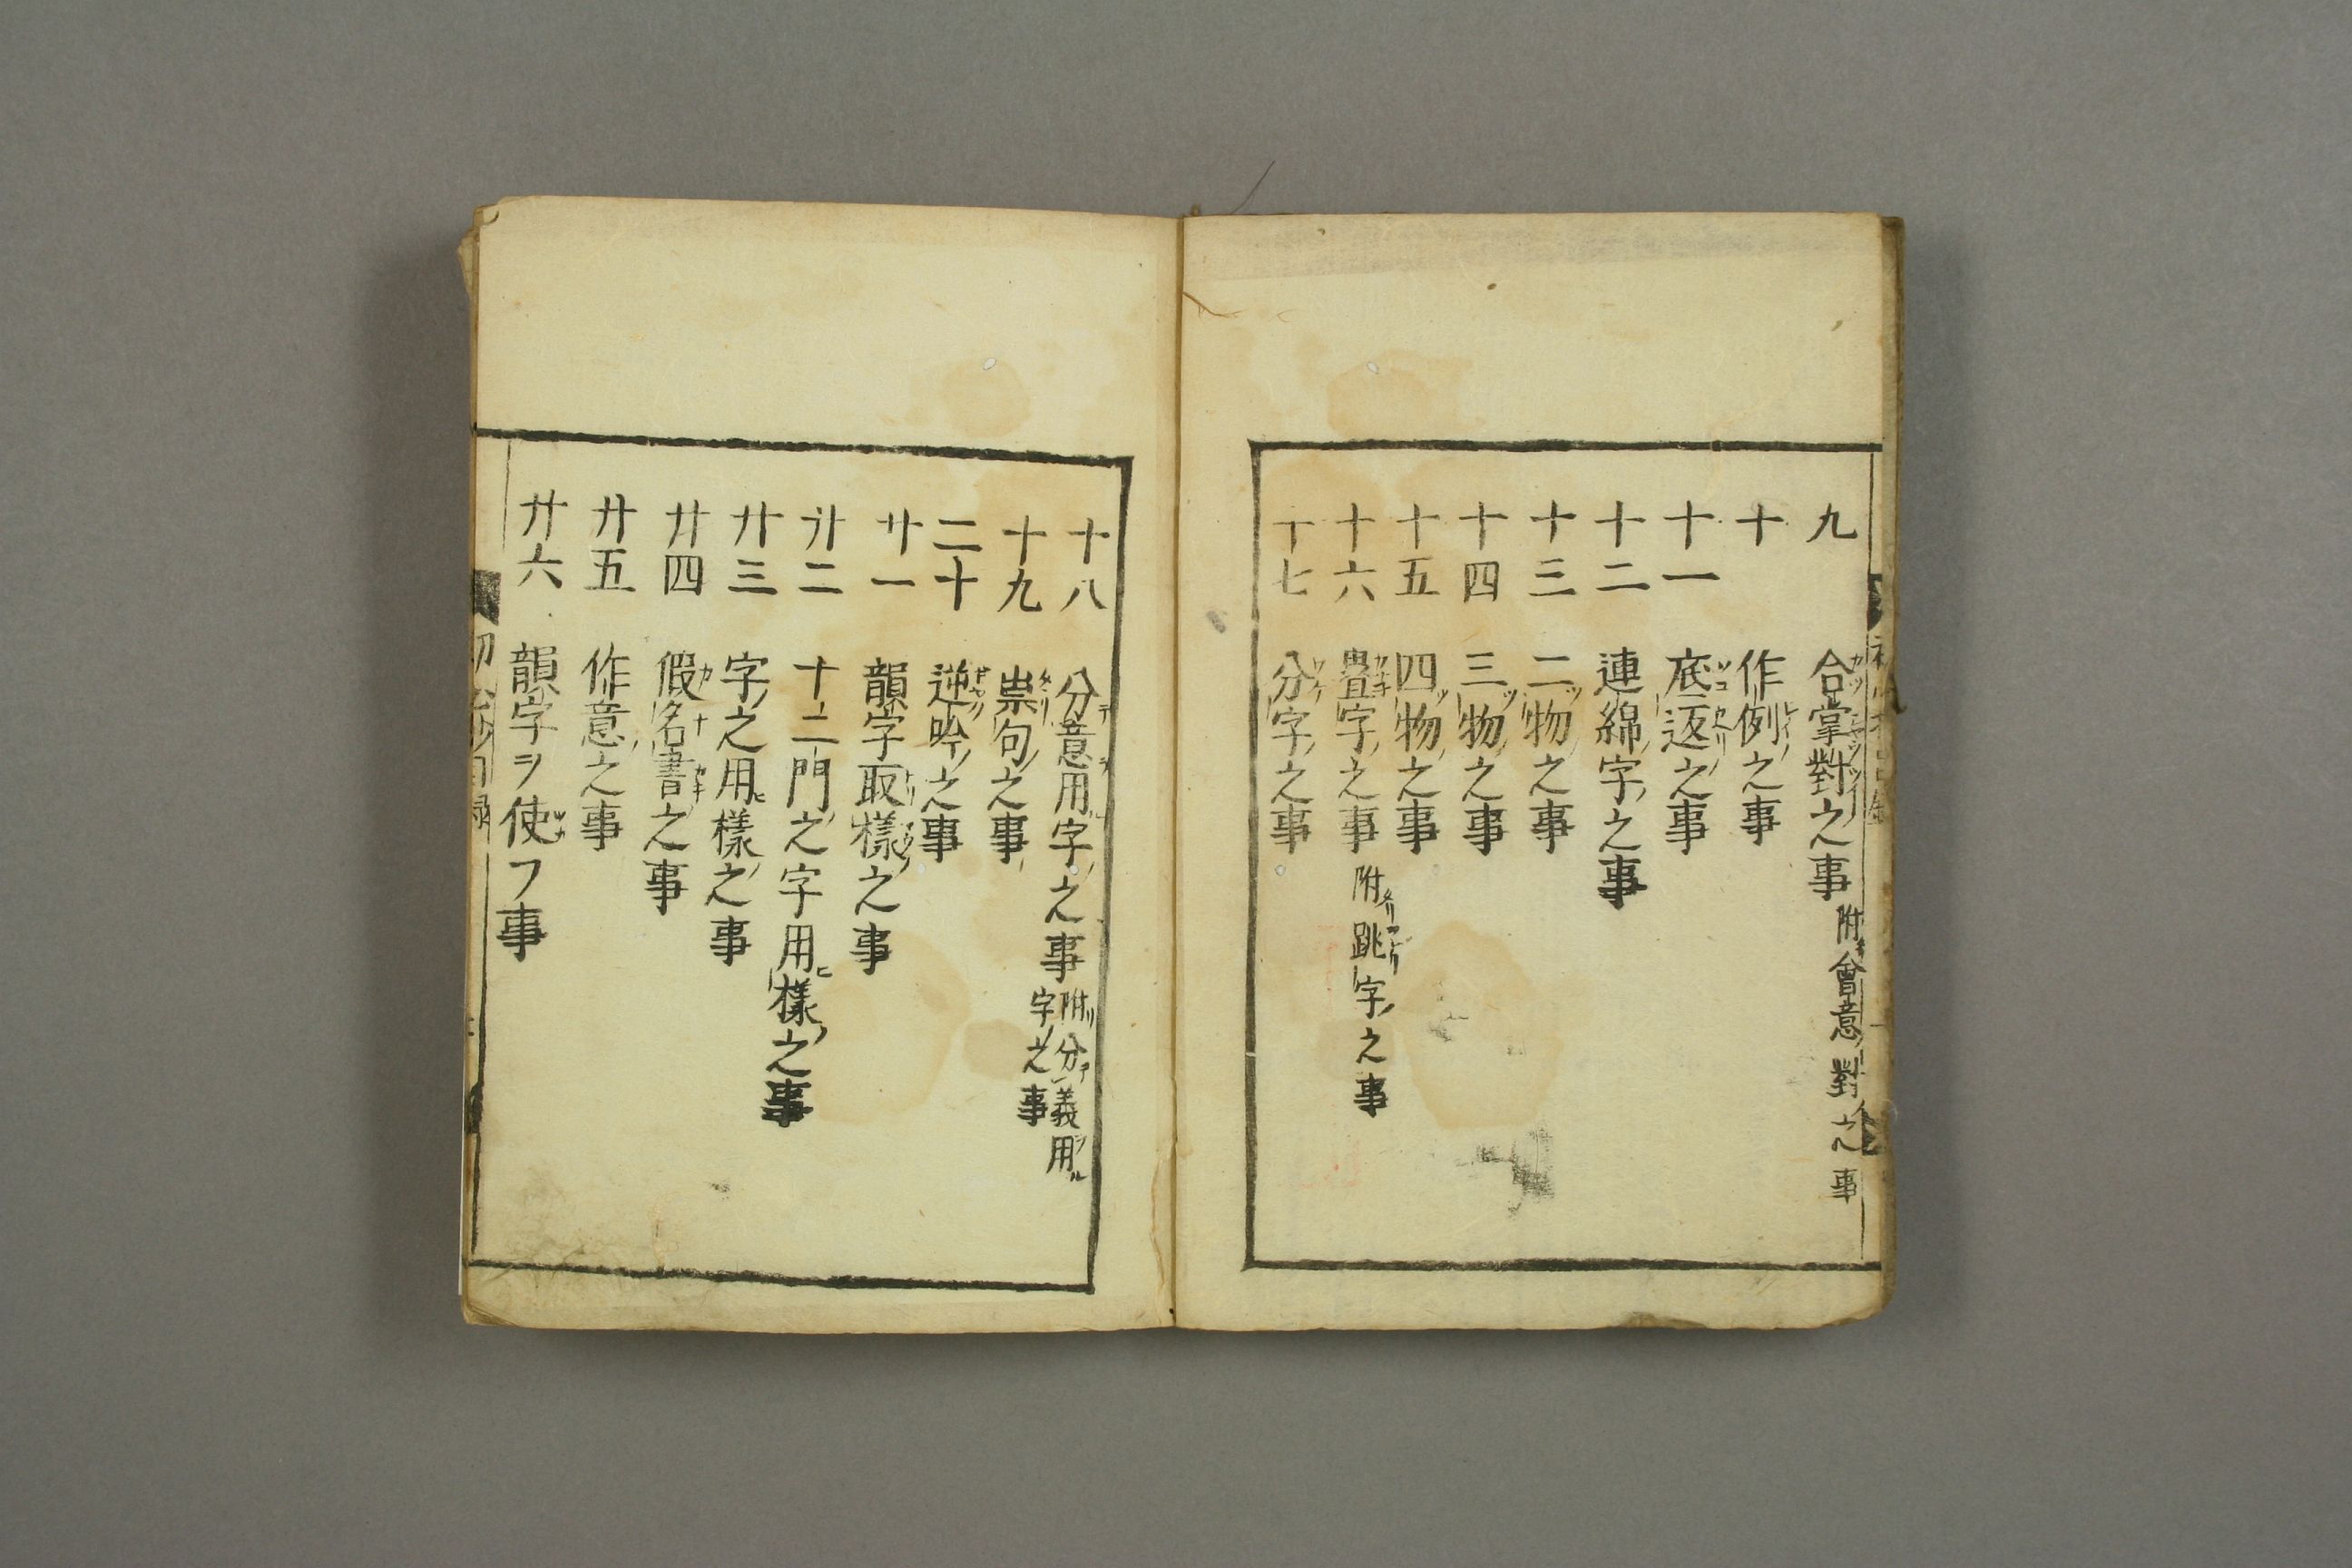 九 合掌對之事 附會意對之事
十 作例之事
十一 底返之事
十二 連綿字之事
十三 二物之事
十四 三物之事
十五 四物之事
十六 畳字之事 附跳字之事
十七 分字之事
十八 分意用字之事 附分義用
字之事
十九 祟句之事
二十 逆吟之事
廿一 韻字取樣之事
廿二 十二門之字用樣之事
廿三 字之用樣之事
廿四 假名書之事
廿五 作意之事
廿六 韻字ヲ使フ事